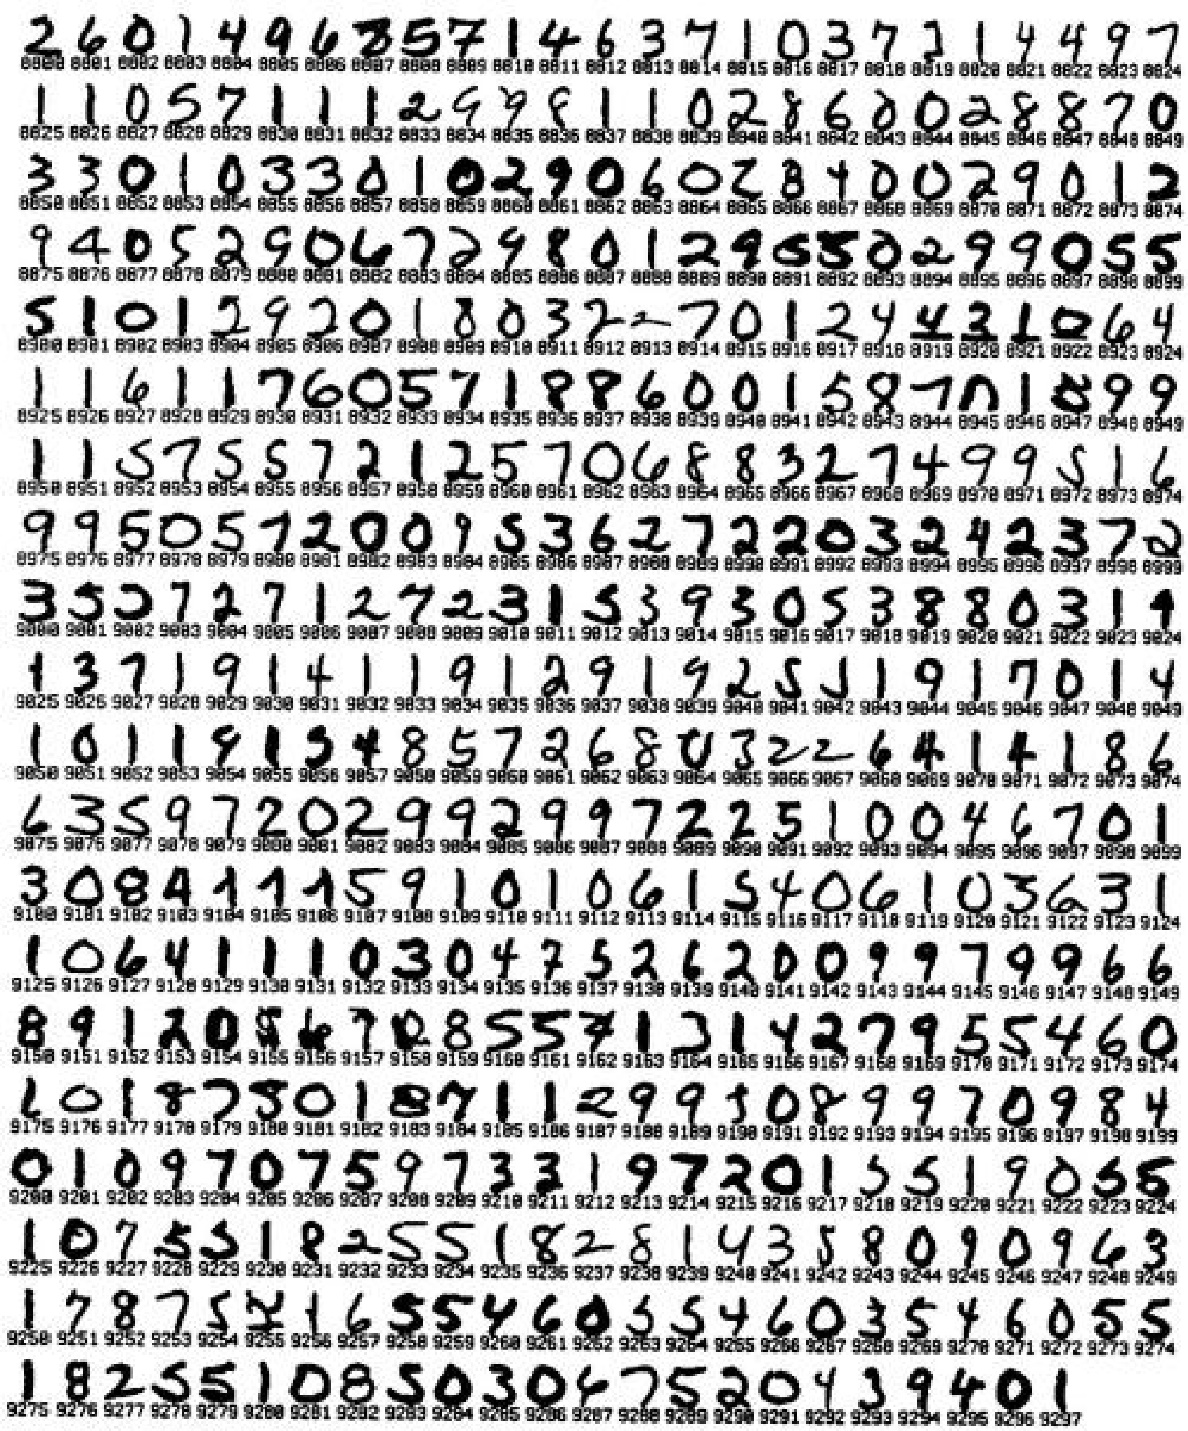 2 6 0 1 4 9 6 5 7 1 4 6 3 7 1 0 3 7 1 4 4 9 7
8800 8801 8802 8803 8804 8805 8806 8807 8808 8809 8810 8811 8812 8813 8814 8815 8816 8817 8818 8819 8820 8821 8822 8823 8824
1 1 0 5 7 1 1 1 2 9 9 8 1 1 0 2 8 6 0 0 2 8 8 7 0
8825 8826 8827 8828 8829 8830 8831 8832 8833 8834 8835 8836 8837 8838 8839 8840 8841 8842 8843 8844 8845 8846 8847 8848 8849
3 3 0 1 0 3 3 0 1 0 2 9 0 6 0 2 8 4 0 0 2 9 0 1 2
8850 8851 8852 8853 8854 8855 8856 8857 8858 8859 8860 8861 8862 8863 8864 8865 8866 8867 8868 8869 8870 8871 8872 8873 8874
9 4 0 5 2 9 0 6 7 2 9 8 0 1 2 9 5 5 0 2 9 9 0 5 5
8875 8876 8877 8878 8879 8880 8881 8882 8883 8884 8885 8886 8887 8888 8889 8890 8891 8892 8893 8894 8895 8896 8897 8898 8899
5 1 0 1 2 9 2 0 1 8 0 3 2 2 7 0 1 2 4 4 3 1 0 6 4
8900 8901 8902 8903 8904 8905 8906 8907 8908 8909 8910 8911 8912 8913 8914 8915 8916 8917 8918 8919 8920 8921 8922 8923 8924
1 1 6 1 1 7 6 0 5 7 1 8 8 6 0 0 1 5 8 7 0 1 8 9 9
8925 8926 8927 8928 8929 8930 8931 8932 8933 8934 8935 8936 8937 8938 8939 8940 8941 8942 8943 8944 8945 8946 8947 8948 8949
1 1 5 7 5 5 7 2 1 2 5 7 0 6 8 8 3 2 7 4 9 9 5 1 6
8950 8951 8952 8953 8954 8955 8956 8957 8958 8959 8960 8961 8962 8963 8964 8965 8966 8967 8968 8969 8970 8971 8972 8973 8974
9 9 5 0 5 7 2 0 0 9 5 3 6 2 7 2 2 0 3 2 4 2 3 7 2
8975 8976 8977 8978 8979 8980 8981 8982 8983 8984 8985 8986 8987 8988 8989 8990 8991 8992 8993 8994 8995 8996 8997 8998 8999
3 5 5 7 2 7 1 2 7 2 3 1 5 3 9 3 0 5 3 8 8 0 3 1 4
9000 9001 9002 9003 9004 9005 9006 9007 9008 9009 9010 9011 9012 9013 9014 9015 9016 9017 9018 9019 9020 9021 9022 9023 9024
4 3 7 1 9 1 4 1 1 9 1 2 9 1 9 2 5 5 1 9 1 7 0 1 4
9025 9026 9027 9028 9029 9030 9031 9032 9033 9034 9035 9036 9037 9038 9039 9040 9041 9042 9043 9044 9045 9046 9047 9048 9049
1 0 1 1 9 1 5 4 8 5 7 2 6 8 0 3 2 2 6 4 1 4 1 8 6
9050 9051 9052 9053 9054 9055 9056 9057 9058 9059 9060 9061 9062 9063 9064 9065 9066 9067 9068 9069 9070 9071 9072 9073 9074
6 3 5 9 7 2 0 2 9 9 2 9 9 7 2 2 5 1 0 0 4 6 7 0 1
9075 9076 9077 9078 9079 9080 9081 9082 9083 9084 9085 9086 9087 9088 9089 9090 9091 9092 9093 9094 9095 9096 9097 9098 9099
3 0 8 4 1 1 1 5 9 1 0 1 0 6 1 5 4 0 6 1 0 3 6 3 1
9100 9101 9102 9103 9104 9105 9106 9107 9108 9109 9110 9111 9112 9113 9114 9115 9116 9117 9118 9119 9120 9121 9122 9123 9124
1 0 6 4 1 1 1 0 3 0 4 7 5 2 6 2 0 0 9 9 7 9 9 6 6
9125 9126 9127 9128 9129 9130 9131 9132 9133 9134 9135 9136 9137 9138 9139 9140 9141 9142 9143 9144 9145 9146 9147 9148 9149
8 9 1 2 0 5 6 7 8 5 5 7 1 3 1 4 2 7 9 5 5 4 6 0
9150 9151 9152 9153 9154 9155 9156 9157 9158 9159 9160 9161 9162 9163 9164 9165 9166 9167 9168 9169 9170 9171 9172 9173 9174
1 0 1 8 7 5 0 1 8 7 1 1 2 9 9 5 0 8 9 9 7 0 9 8 4
9175 9176 9177 9178 9179 9180 9181 9182 9183 9184 9185 9186 9187 9188 9189 9190 9191 9192 9193 9194 9195 9196 9197 9198 9199
0 1 0 9 7 0 7 5 9 7 3 3 1 9 7 2 0 1 5 5 1 9 0 5 5
9200 9201 9202 9203 9204 9205 9206 9207 9208 9209 9210 9211 9212 9213 9214 9215 9216 9217 9218 9219 9220 9221 9222 9223 9224
1 0 7 5 5 1 8 2 5 5 1 8 2 8 1 4 3 5 8 0 9 0 9 6 3
9225 9226 9227 9228 9229 9230 9231 9232 9233 9234 9235 9236 9237 9238 9239 9240 9241 9242 9243 9244 9245 9246 9247 9248 9249
1 7 8 7 5 1 6 5 5 4 6 0 5 5 4 6 0 3 5 4 6 0 5 5
9250 9251 9252 9253 9254 9255 9256 9257 9258 9259 9260 9261 9262 9263 9264 9265 9266 9267 9268 9269 9270 9271 9272 9273 9274
1 8 2 5 5 1 0 8 5 0 3 0 6 7 5 2 0 4 3 9 4 0 1
9275 9276 9277 9278 9279 9280 9281 9282 9283 9284 9285 9286 9287 9288 9289 9290 9291 9292 9293 9294 9295 9296 9297